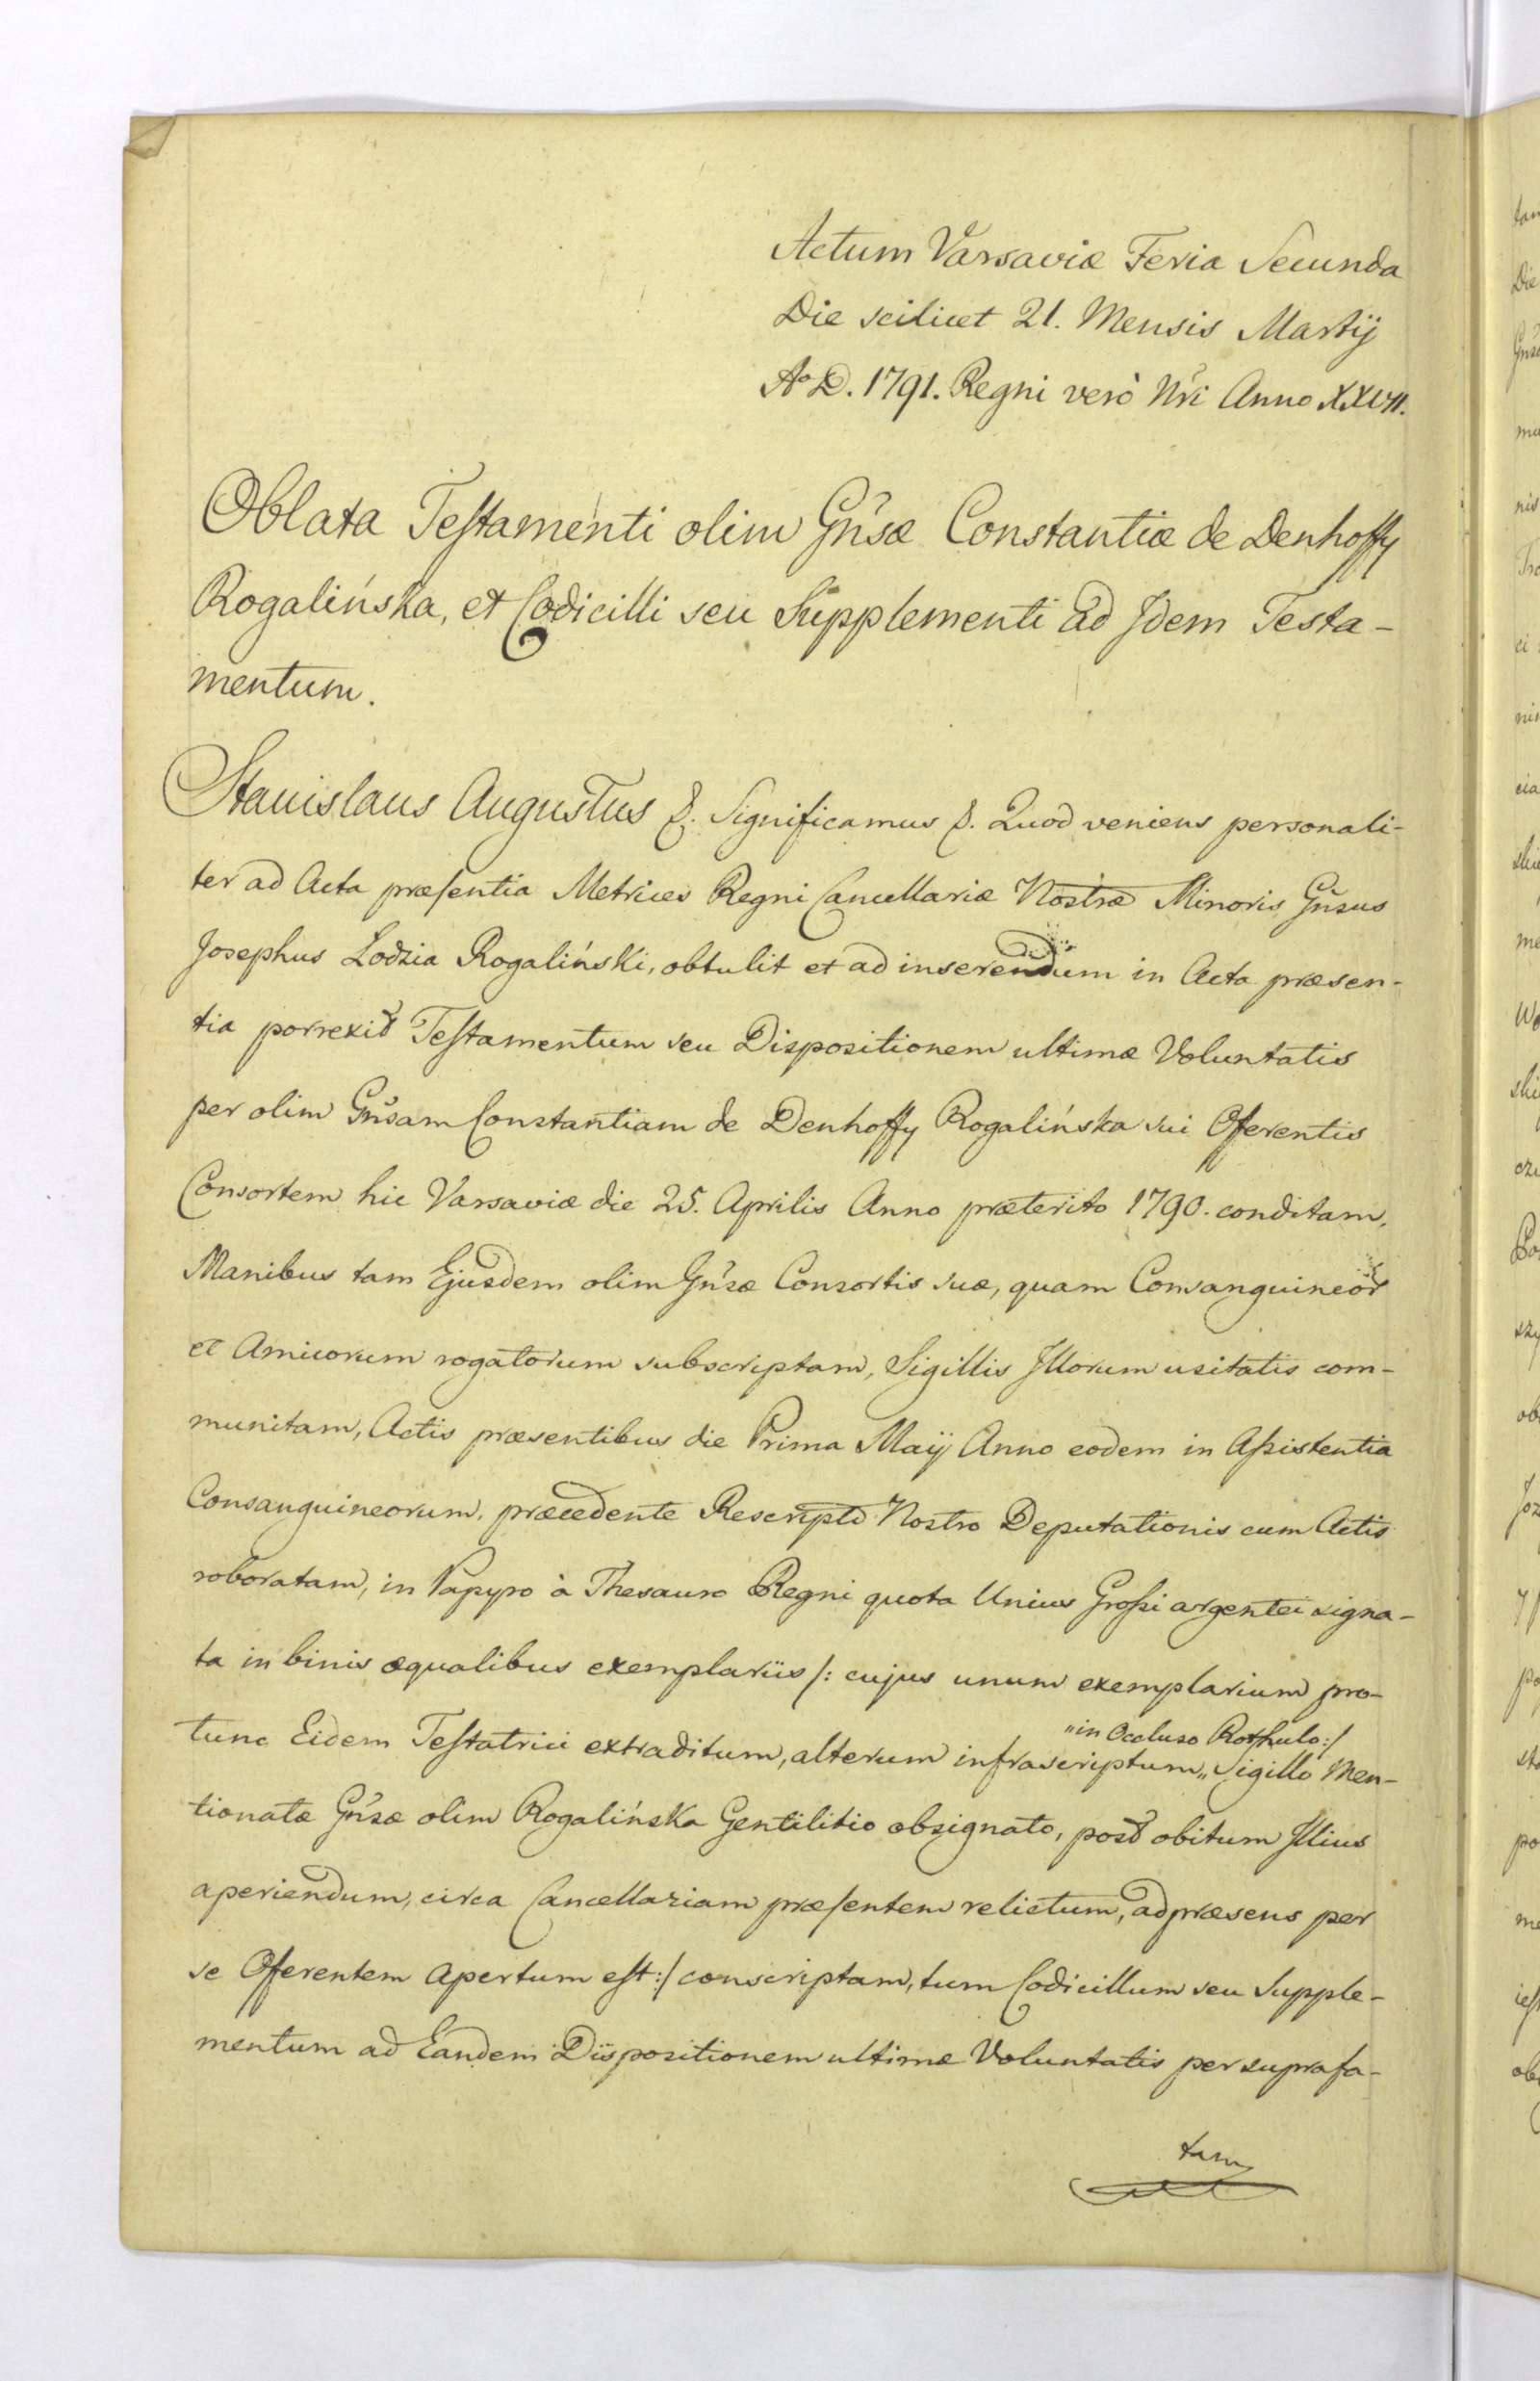 Actum Varsaviæ Feria Secunda
Die scilicet 21. Mensis Martij
Aº D. 1791. Regni verò Nri Anno XXVII.
Oblata Testamenti olim Gnsæ Constantiæ de Denhoffy
Rogalińska, et Codicilli seu Supplementi ad Idem Testa-
mentum.
Stanislaus Augustus &. Significamus &. Quod veniens personali-
ter ad Acta præsentia Metrices Regni Cancellariæ Nostræ Minoris Gnsus
Josephus Lodzia Rogaliński, obtulit et ad inserendum in Acta præsen-
tia porrexit Testamentum seu Dispositionem ultimæ Voluntatis
per olim Gnsam Constantiam de Denhoffy Rogalińska sui Offerentis
Consortem hic Varsaviæ die 25. Aprilis Anno præterito 1790. conditam,
Manibus tam Ejusdem olim Gnsæ Consortis suæ, quam Consanguineor
et Amicorum rogatorum subscriptam, Sigillis Illorum usitatis com-
munitam, Actis præsentibus die Prima Maij Anno eodem in Assistentia
Consanguineorum, præcedente Rescripto Nostro Deputationis cum Actis
roboratam, in Papyro à Thesauro Regni quota Unius Grossi argentei signa-
ta in binis æqualibus exemplariis /: cujus unum exemplarium pro-
tunc Eidem Testatrici extraditum, alterum infrascriptum „in Occluso Rothulo :/ „ Sigillo Men-
tionatæ Gnsæ olim Rogalińska Gentilitio obsignato, post obitum Illius
aperiendum, circa Cancellariam præsentem relictum, ad præsens per
se Offerentem Apertum est :/ conscriptam, tum Codicillum seu Supple-
mentum ad Eandem Dispositionem ultimæ Voluntatis per suprafa-
tam